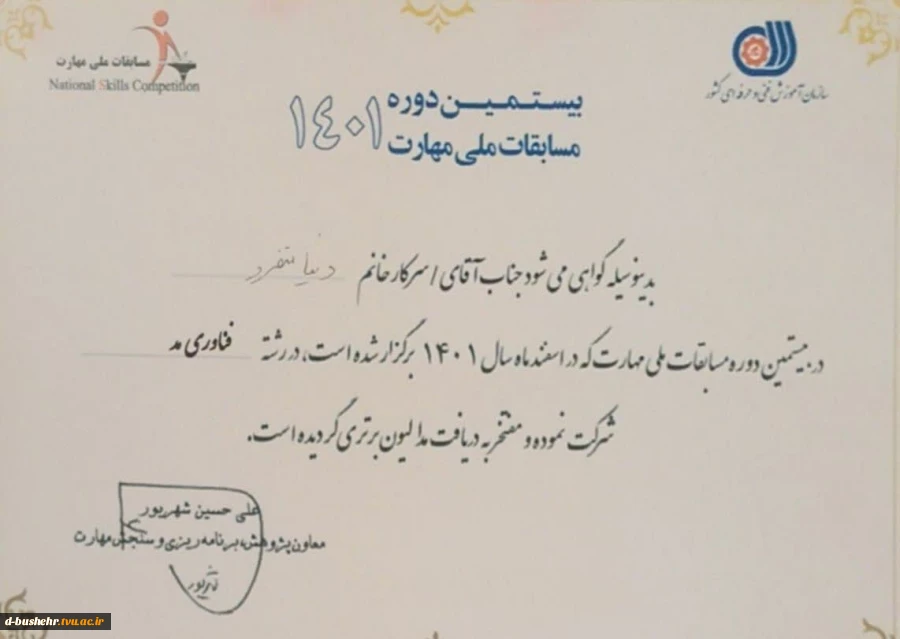 مسابقات ملی مهارت
National Skills Competition
سازمان آموزش فنی و حرفه ای کشور
بیستمین دوره
مسابقات ملی مهارت ۱۴۰۱
بدینوسیله گواهی می شود جناب آقای / سرکار خانم دنیا
در بیستمین دوره مسابقات ملی مهارت که در اسفند ماه سال ۱۴۰۱ برگزار شده است، در رشته فناوری مد
شرکت نموده و مفتخر به دریافت مدالیون برتری گردیده است.
علی حسین شهریور
معاون پژوهش، برنامه ریزی و سنجش مهارت
d-bushehr.tvu.ac.ir